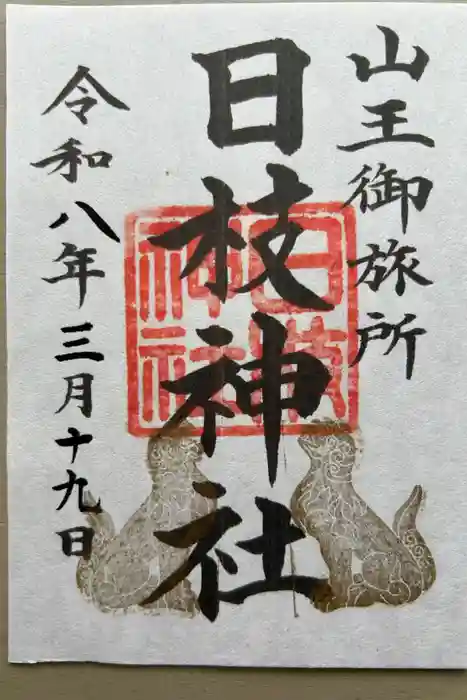 山王御旅所
日枝神社
日枝神社
令和八年三月十九日